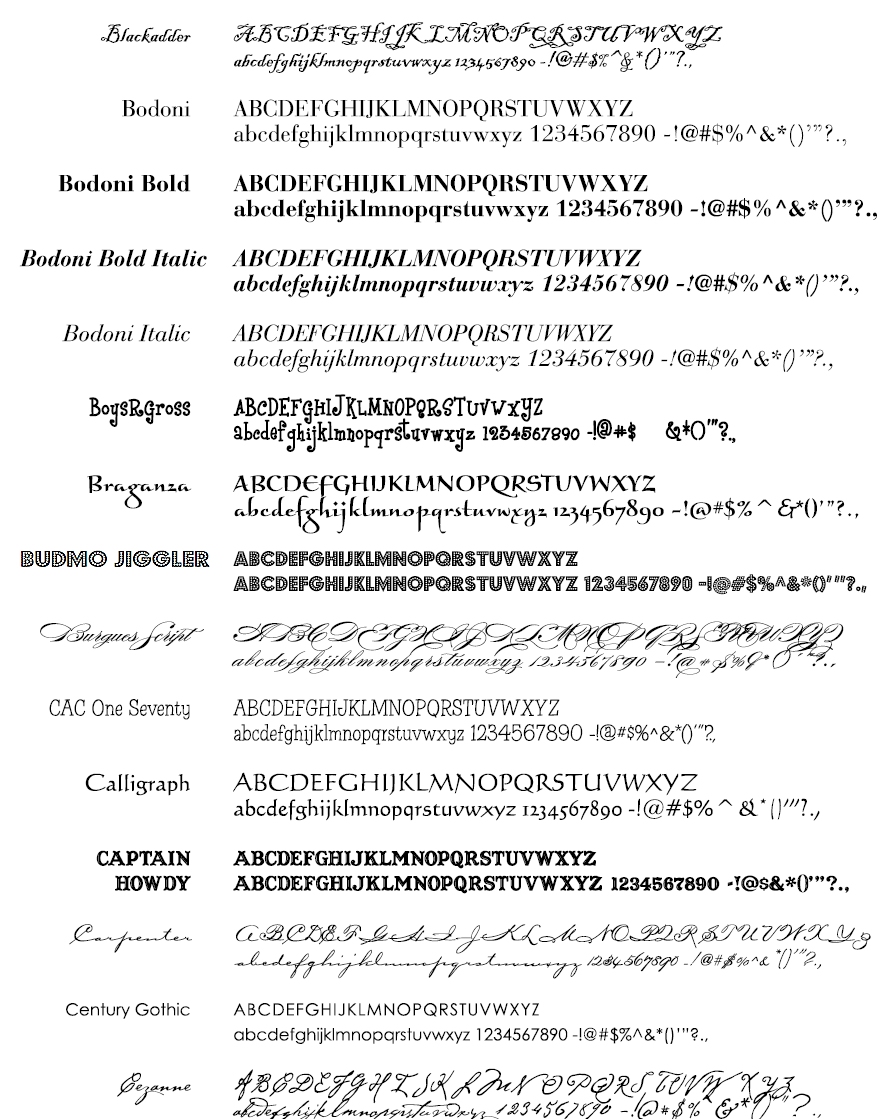 Blackadder ABCDEFGHIJKLMNOPQRSTUVWXYZ
abcdefghijklmnopqrstuvwxyz 1234567890 -!@#$%^&*()'"?.,
Bodoni ABCDEFGHIJKLMNOPQRSTUVWXYZ
abcdefghijklmnopqrstuvwxyz 1234567890 -!@#$%^&*()'"?.,
Bodoni Bold ABCDEFGHIJKLMNOPQRSTUVWXYZ
abcdefghijklmnopqrstuvwxyz 1234567890 -!@#$%^&*()'"?.,
Bodoni Bold Italic ABCDEFGHIJKLMNOPQRSTUVWXYZ
abcdefghijklmnopqrstuvwxyz 1234567890 -!@#$%^&*()'"?.,
Bodoni Italic ABCDEFGHIJKLMNOPQRSTUVWXYZ
abcdefghijklmnopqrstuvwxyz 1234567890 -!@#$%^&*()'"?.,
BoysRGross ABCDEFGHIJKLMNOPQRSTUVWXYZ
abcdefghijklmnopqrstuvwxyz 1234567890 -!@#$ &*()'"?.,
Braganza ABCDEFGHIJKLMNOPQRSTUVWXYZ
abcdefghijklmnopqrstuvwxyz 1234567890 -!@#$%^&*()'"?.,
BUDMO JIGGLER ABCDEFGHIJKLMNOPQRSTUVWXYZ
ABCDEFGHIJKLMNOPQRSTUVWXYZ 1234567890 -!@#$%^&*()'"?.,
Burgues Script ABCDEFGHIJKLMNOPQRSTUVWXYZ
abcdefghijklmnopqrstuvwxyz 1234567890 -!@#$%&*()'"?.,
CAC One Seventy ABCDEFGHIJKLMNOPQRSTUVWXYZ
abcdefghijklmnopqrstuvwxyz 1234567890 -!@#$%^&*()'"?.,
Calligraph ABCDEFGHIJKLMNOPQRSTUVWXYZ
abcdefghijklmnopqrstuvwxyz 1234567890 -!@#$%^&*()'"?.,
CAPTAIN ABCDEFGHIJKLMNOPQRSTUVWXYZ
HOWDY ABCDEFGHIJKLMNOPQRSTUVWXYZ 1234567890 -!@$&*()'"?.,
Carpenter ABCDEFGHIJKLMNOPQRSTUVWXYZ
abcdefghijklmnopqrstuvwxyz 1234567890 -!@#$%^&*()'"?.,
Century Gothic ABCDEFGHIJKLMNOPQRSTUVWXYZ
abcdefghijklmnopqrstuvwxyz 1234567890 -!@#$%^&*()'"?.,
Cezanne ABCDEFGHIJKLMNOPQRSTUVWXYZ
abcdefghijklmnopqrstuvwxyz 1234567890 -!@#$%^&*()'"?.,